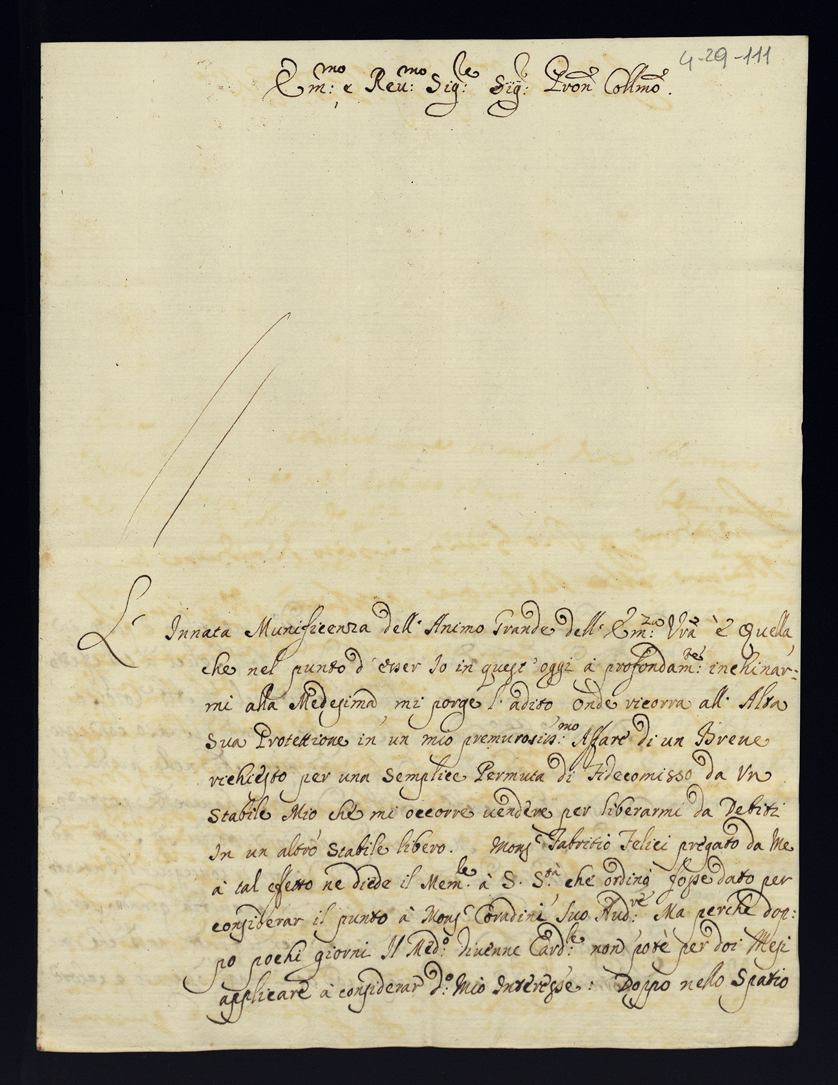 4-29-111
Em:mo e Reu:mo Sig:re Sig:r Pron Collmo.
L' Innata Munificenza dell' Animo Grande dell' Em:za Vra è Quella
che nel punto d'esser Io in quest' oggi à profondam:te inchinar-
mi alla Medesima mi porge l' adito onde ricorra all' Alta
Sua Protettione in un mio premurosiss:mo Affare di un Breue
richiesto per una semplice Permuta di Fidecomisso da Un
Stabile Mio che mi occorre uendere per liberarmi da Debiti
In un altro Stabile libero. Mons.r Fabritio Felici pregato da Me
à tal effetto ne diede il Mem:le à S. S.tà che ordinò fosse dato per
considerar il punto à Mons.r Coradini suo Aud:re Ma perche dop:
po pochi giorni Il Med:o diuenne Card:le non potè per doi Mesi
applicare à considerar d:o Mio Interesse: Doppo nello Spatio